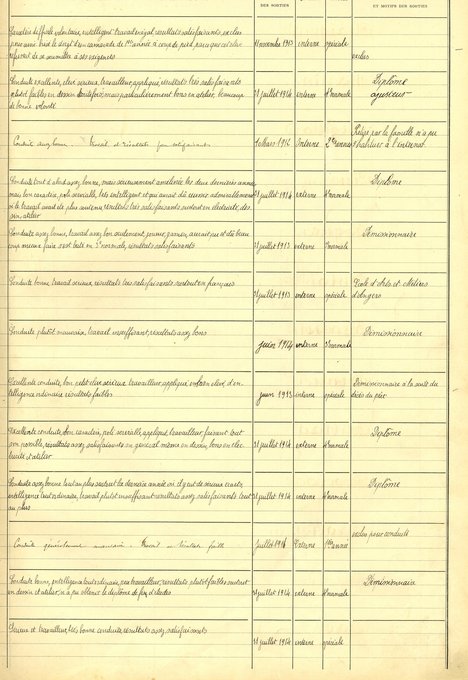 DES SORTIES
ET MOTIFS DES SORTIES
Caractère difficile, intelligent travail inégal, résultats satisfaisants, exclus
pour avoir
refusait de se soumettre à ses exigences
11 novembre 1913 interne spéciale
exclus
Conduite excellente, élève sérieux, travailleur, appliqué, résultats très satisfaisants
plutôt faibles en dessin toutefois, mais particulièrement bons en atelier, beaucoup
de bonne volonté
31 juillet 1914 interne 4e normale
Diplôme
ajusteur
Conduite assez bonne. Travail et résultats peu satisfaisants
10 Mars 1914 Interne 2e année
Repris par la famille n'a pu
s'habituer à l'internat.
Conduite tout d'abord assez bonne, mais sérieusement améliorée les deux dernières années
mais bon camarade, poli, serviable, très intelligent et qui aurait dû réussir admirablement
si le travail avait été plus soutenu, résultats très satisfaisants surtout en électricité, des
sin, atelier
31 juillet 1914 interne 4e normale
Diplôme
Conduite assez bonne, travail assez bon seulement, jeune gamin, aurait pu et dû beau
coup mieux faire s'est tenu en 3e normale, résultats satisfaisants
31 juillet 1913 interne 3e normale
Démissionnaire
Conduite bonne, travail sérieux, résultats très satisfaisants, surtout en français
31 juillet 1913 interne spéciale
Ecole d'Arts et Métiers
d'Angers
Conduite plutôt mauvaise, travail insuffisant, résultats assez bons
juin 1914 interne normale
Démissionnaire
Excellente conduite, bon petit élève sérieux travailleur appliqué, d'in-
telligence ordinaire résultats faibles
juin 1913 interne spéciale
Démissionnaire à la suite du
décès du père
Excellente conduite, bon camarade, poli, serviable, appliqué, travailleur faisant tout
son possible, résultats assez satisfaisants en général même en dessin, bons en élec-
tricité et atelier
31 juillet 1914 externe 4e normale
Diplôme
Conduite assez bonne tout au plus sauf la dernière année où il y eut de sérieux écarts,
intelligence tout ordinaire, travail plutôt insuffisant résultats assez satisfaisants tout
au plus
31 juillet 1914 interne 4e normale
Diplôme
Conduite généralement mauvaise. Travail et résultats faibles
Juillet 1914 Externe 1ère année
exclus pour conduite
Conduite bonne, intelligence tout ordinaire, assez travailleur, résultats plutôt faibles surtout
en dessin et atelier, n'a pu obtenir le diplôme de fin d'études
31 juillet 1914 interne 4e normale
Démissionnaire
Sérieux et travailleur, très bonne conduite, résultats assez satisfaisants
31 juillet 1914 interne spéciale